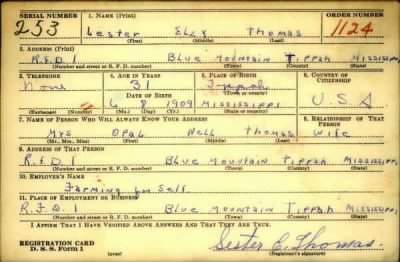 SERIAL NUMBER 1. NAME (Print) ORDER NUMBER
253 Lester Elzy Thomas 1124
(First) (Middle) (Last)
2. ADDRESS (Print)
R.F.D. 1 Blue Mountain Tippah Mississippi
(Number and street or R. F. D. number) (Town) (County) (State)
3. TELEPHONE 4. AGE IN YEARS 5. PLACE OF BIRTH 6. COUNTRY OF CITIZENSHIP
None 31 Tippah
DATE OF BIRTH (Town or county)
6 8 1909 Mississippi U.S.A
(Exchange) (Number) (Mo.) (Day) (Yr.) (State or country)
7. NAME OF PERSON WHO WILL ALWAYS KNOW YOUR ADDRESS 8. RELATIONSHIP OF THAT PERSON
Mrs Opal Nell Thomas Wife
(Mr., Mrs., Miss) (First) (Middle) (Last)
9. ADDRESS OF THAT PERSON
R.F.D. 1 Blue Mountain Tippah Mississippi
(Number and street or R. F. D. number) (Town) (County) (State)
10. EMPLOYER'S NAME
Farming for Self
11. PLACE OF EMPLOYMENT OR BUSINESS
R.F.D. 1 Blue Mountain Tippah Mississippi
(Number and street or R. F. D. number) (Town) (County) (State)
I AFFIRM THAT I HAVE VERIFIED ABOVE ANSWERS AND THAT THEY ARE TRUE.
REGISTRATION CARD
D. S. S. Form 1 (over) Lester E. Thomas
(Registrant's signature)